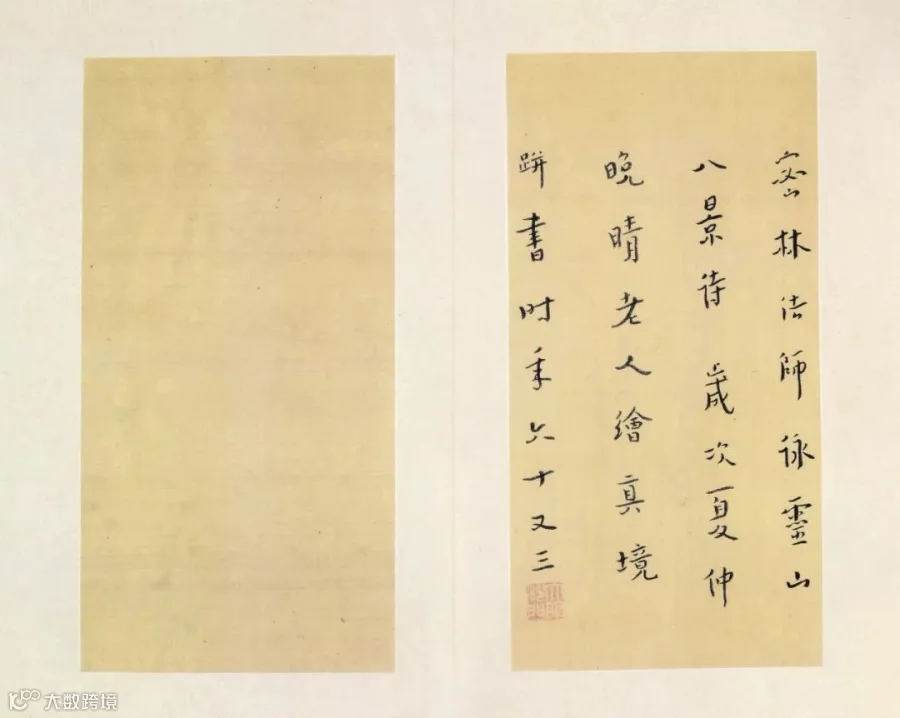 密林法師詠靈山
八景詩 歲次夏仲
晚晴老人繪真境
跰書时年六十又三
大数跨境